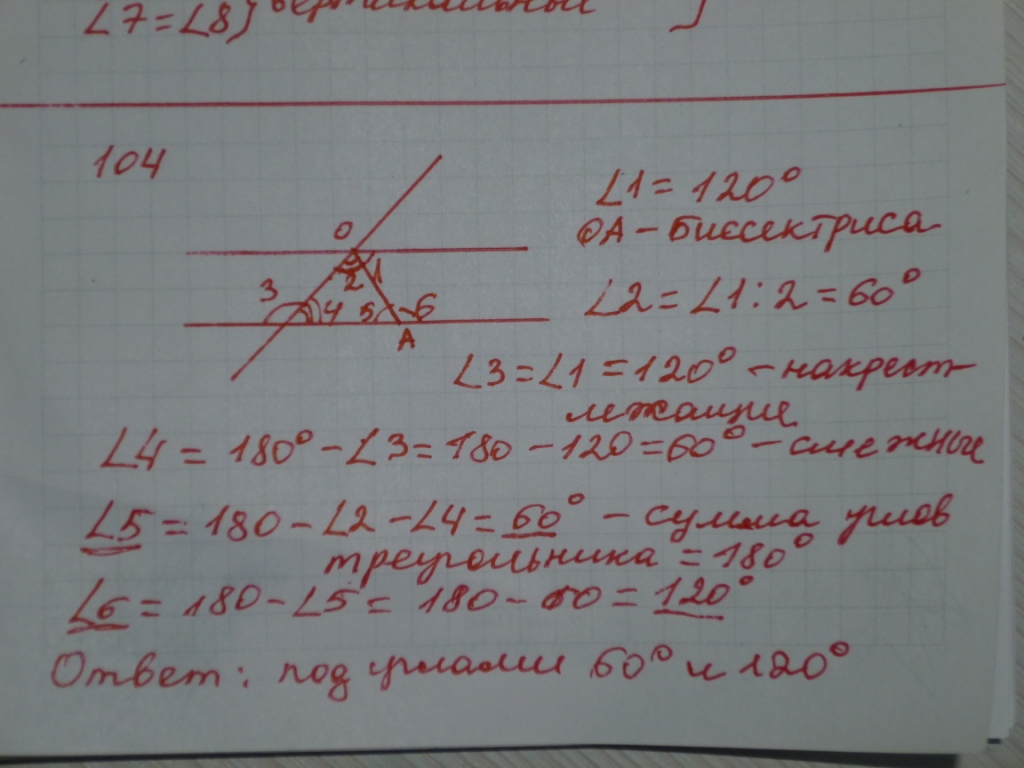 ∠7=∠8} вертикальные ]
104
∠1 = 120°
OA - биссектриса
O
2 1
3 4 5 6
A
∠2 = ∠1 : 2 = 60°
∠3 = ∠1 = 120° - накрест-
лежащие
∠4 = 180° - ∠3 = 180 - 120 = 60° - смежные
∠5 = 180 - ∠2 - ∠4 = 60° - сумма углов
треугольника = 180°
∠6 = 180 - ∠5 = 180 - 60 = 120°
Ответ: под углами 60° и 120°